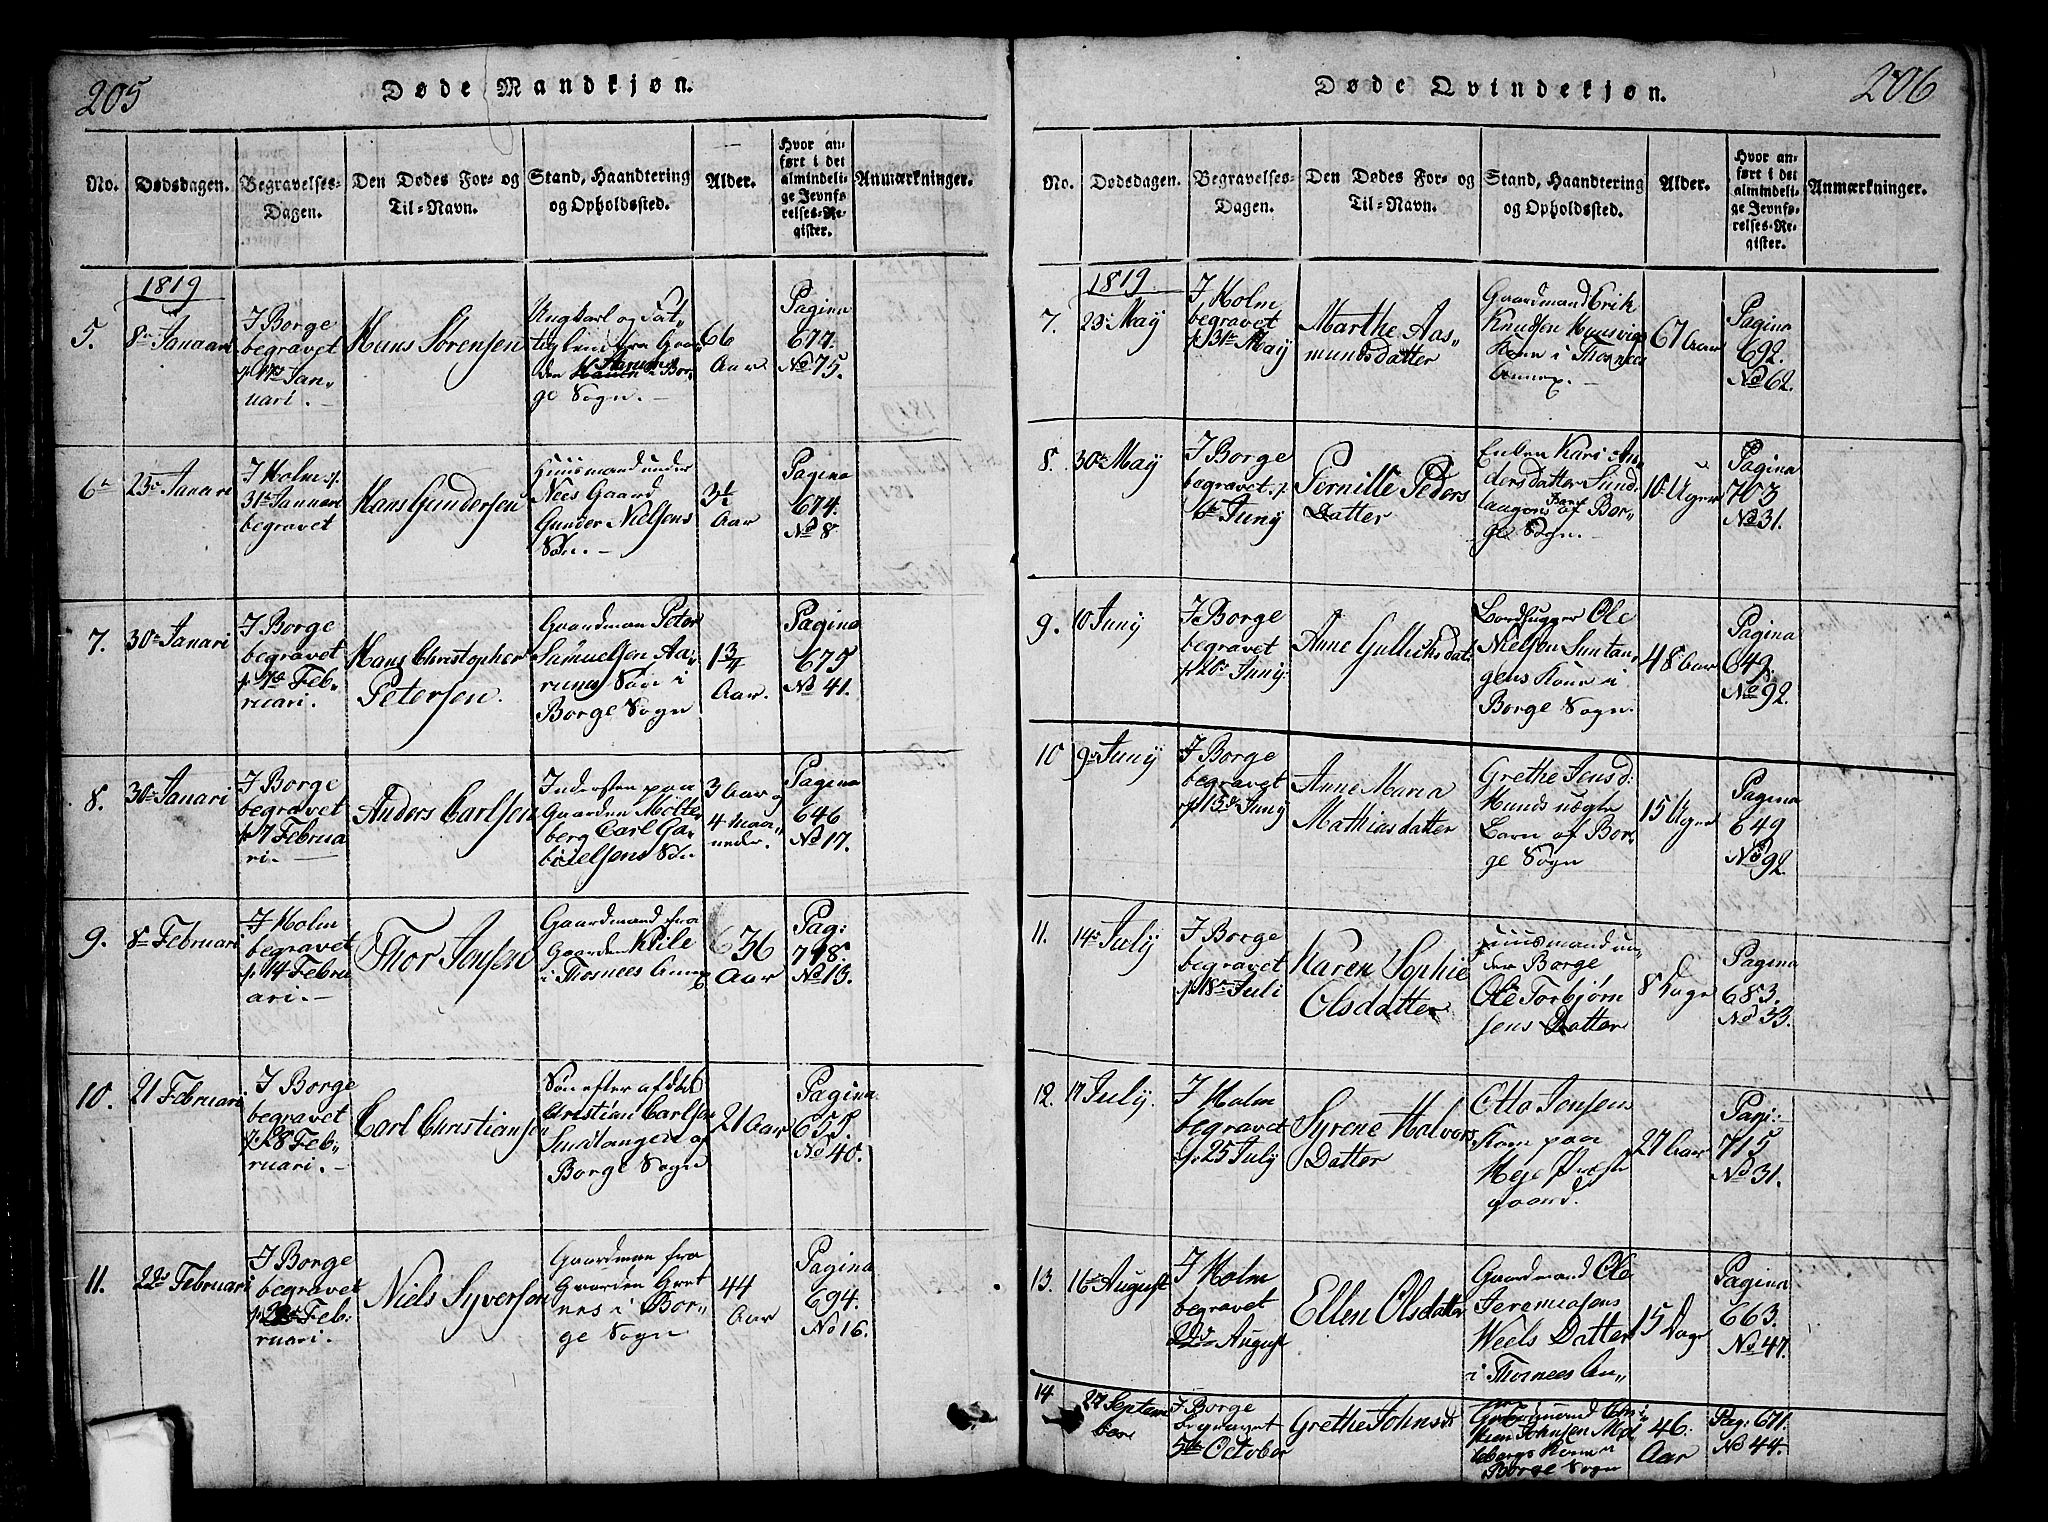 205
Døde Mandkjøn.
No.
Dødsdagen.
Begravelses-
Dagen.
Den Dødes For- og
Til-Navn.
Stand, Haandtering
og Opholdssted.
Alder.
Hvor an-
ført i det
almindeli-
ge Jevnfø-
relses-Re-
gister.
Anmærkninger.
1819
5.
8de Januari
I Borge
begravet
p. 17de Jan„
uari.
Hans Sörensen
Ungkarl og Fat„
tiglem fra Gaar„
den
i Bor„
ge Sogn.
66
Aar
Pagina
677.
No 75.
6
23de Januari
I Holm p.
31te Januari
begravet
Hans Gundersen
Huusmand under
Nees Gaard
Gunder Nielsens
Sön.
3½
Aar
Pagina
674.
No 8
7.
30te Januari
I Borge
begravet
p. 7de Feb„
ruari.
Hans Christopher
Petersen.
Gaardman Peter
Samuelsen Aa„
rums Sön i
Borge Sogn
1¾
Aar.
Pagina
675
No 41.
8.
30te Januari
I Borge
begravet
p. 7 Februa
ri.
Anders Carlsen
Indersten paa
Gaarden Molte
berg Carl Ga„
brielsens Sön
3 Aar og
4 Maa„
neder.
Pagina
646
No 17.
9.
8de Februari
I Holm
begravet
p. 14 Febru
ari.
Thor Jensen
Gaardmand fra
Gaarden Kiile
i Thornees Annex
36
Aar
Pag:
718.
No 13.
10.
21 Februari
I Borge
begravet
p. 28 Feb„
ruari.
Carl Christiansen
Sön efter afdöd
Christian Carlsen
Sundlöngen af
Borge Sogn
21 Aar
Pagina
655
No 40.
11.
22de Februari
I Borge
begravet
p. Feb:
ruari.
Niels Syversen
Gaardman fra
Gaarden Gret
nes i Bor„
ge Sogn
44
Aar
Pagina
694.
No 16.
206
Døde Qvindekjøn.
No.
Dødsdagen.
Begravelses-
Dagen.
Den Dødes For- og
Til-Navn.
Stand, Haandtering
og Opholdssted.
Alder.
Hvor an-
ført i det
almindeli-
ge Jevnfø-
relses-Re-
gister.
Anmærkninger.
1819.
7.
23de May
I Holm
begravet
p. 31te May
Marthe Aas„
mundsdatter
Gaardmand Erik
Knudsen Hunsvigs
Kone i Thornees
Annex.
67 Aar
Pagina
692.
No 62.
8.
30te May
I Borge
begravet p.
6te Juny
Pernille Peders
Datter
Enken Kari An„
dersdatter Sund„
laugens Barn af Bor„
ge Sogn.
10 Uger
Pagina
703
No 31.
9.
10 Juny
I Borge
begravet
p. 20de Juny
Anne Gullichsdat:
Ole
Nielsen Suntan„
gens Kone i
Borge Sogn.
48 Aar
Pagina
649.
No 92.
10
9de Juny
I Borge
begravet
p. 13de Juny
Anne Maria
Mathiasdatter
Grethe Jensd:
Hunds uægte
Barn af Bor„
ge Sogn
15 Uger
Pagina
649
No 92.
11.
14de July
I Borge
begravet
p. 18de Juli
Karen Sophie
Olsdatter
Huusmand un„
der Borge
Ole Torbjörn
sens Datter
8 Dage
Pagina
683.
No 33.
12.
17 July.
I Holm
begravet
p. 25 July
Syrene Halvors
Datter
Otto Jensens
Kone paa
Heje Præste
gaard.
27 Aar
Pagi:
715
No 31.
13.
16de August
I Holm
begravet
22de August
Ellen Olsdatter
Gaardmand Ole
Jeremiasens
Weels Datter
i Thornees An„
nex
15 Dage
Pagina
663.
No 47.
14
27 Septem
ber
I Borge
begravet
5te October
Grethe Johnsd
Gaardmand
Johnsen Mol
tebergs Kone i
Borge Sogn
46.
Aar
Pag: 671.
No 44.